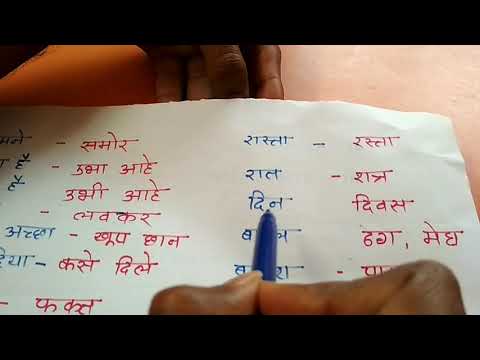 मने - समोर
है - उभा आहे
है उभी आहे
- लवकर
अच्छा - खूप छान
दिया - कसे दिले
- फक्त
रास्ता - रस्ता
रात - रात्र
दिन दिवस
ढग, मेघ